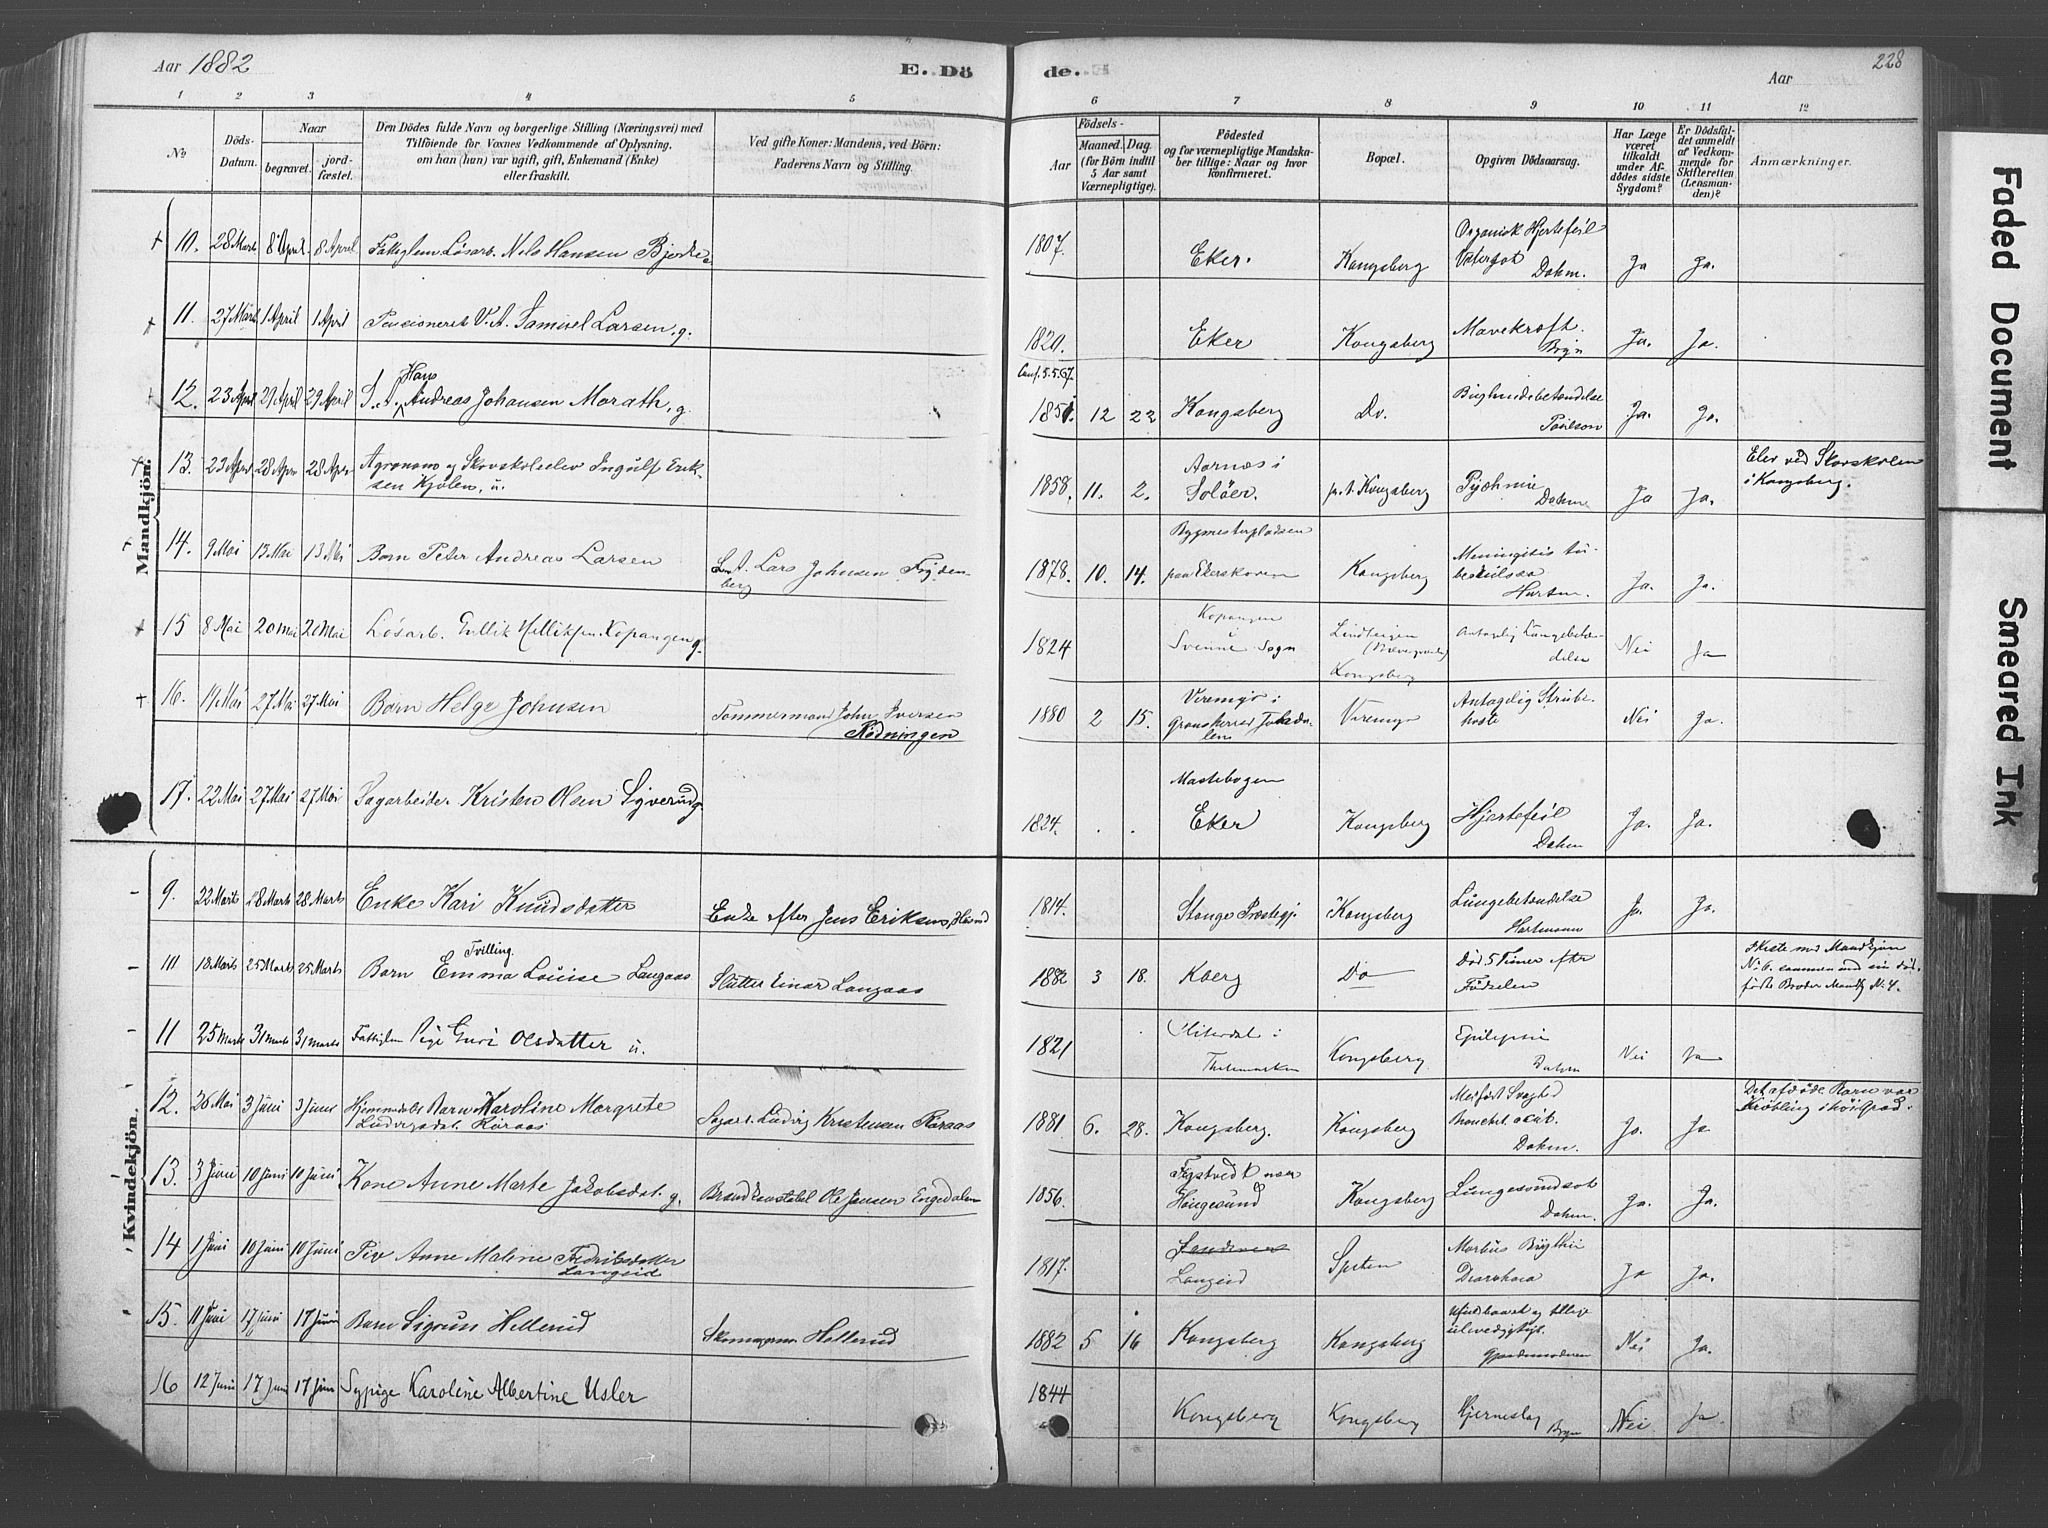 Aar 1882
E. Dö
de.
Aar
228
1 2 3 4 5
6 7 8 9 10 11 12
No
Döds-Datum.
Naar
begravet.
jord-fæstet.
Den Dödes fulde Navn og borgerlige Stilling (Næringsvei) med
Tilföiende for Voxnes Vedkommende af Oplysning.
om han (hun) var ugift, gift, Enkemand (Enke)
eller fraskilt.
Ved gifte Koner: Mandens, ved Börn:
Faderens Navn og Stilling.
Födsels-
Aar
Maaned. Dag.
(for Börn indtil
5 Aar samt
Værnepligtige).
Födested
og for værnepligtige Mandska-
ber tillige: Naar og hvor
konfirmeret.
Bopæl.
Opgiven Dödsaarsag.
Har Læge
været
tilkaldt
under Af-
dödes sidste
Sygdom?
Er Dödsfal-
det anmeldt
af Vedkom-
mende for
Skifteretten
(Lensman-
den)?
Anmærkninger.
Mandkjön.
10. 28 Marts 8 April 8 April Fattiglem Løsarb. Nils Hansen Bjerke 1807. Eker. Kongsberg Organisk Hjertefeil
Vatersot Dahm. Ja Ja.
11. 27 Marts 1 April 1 April Pensioneret S.A. Samuel Larsen, g. 1820. Eker Kongsberg Mavekræft. Bryn Ja. Ja.
12. 23 April 29 April 29 April S.A. Hans Andreas Johansen Morath, g. Conf. 5.5.67. 1851. 12 22 Kongsberg Do. Bughindebetændelse
Poulson Ja. Ja.
13. 23 April 28 April 28 April Agronom og Skovskoleelev Ingulf Erik-
sen Kjølen, u. 1858. 11. 2. Aarnæs i
Soløer. p.t. Kongsberg Pyæhmie Dahm Ja Ja. Elev ved Skovskolen
i Kongsberg.
14. 9 Mai 13 Mai 13 Mai Barn Peter Andreas Larsen S.A. Lars Johnsen Fryden-
berg 1878. 10. 14. Bygmesterpladsen
paa Ekerskoven Kongsberg Meningitis tu-
berkulosa Ja. Ja.
15 8 Mai 20 Mai 20 Mai Løsarb. Gullik Helliksen Kopangen g. 1824 Kopangen
i
Svenne Sogn Kongsberg Antagelig Lungebetæn-
delse Nei Ja
16. 19 Mai 27 Mai 27 Mai Barn Helge Johnsen Tømmermand John Iversen
Rødningen 1880 2 15. Viremyr i
Granskerred Viremyr Antagelig Strube-
hoste Nei Ja.
17. 22 Mai 27 Mai 27 Mai Sagarbeider Kristen Olsen Syverud g. 1824. . . Mastebogen
Eker Kongsberg Hjertefeil
Dahm Ja. Ja.
Kvindekjön.
9. 22 Marts 28 Marts 28 Marts Enke Kari Knudsdatter Enke efter Jens Eriksen, Husmd 1814. Stange Præstegj. Kongsberg Lungebetændelse
Hartmann Ja. Ja.
10 18 Marts 25 Marts 25 Marts Barn Tvilling. Emma Louise Langaas Slutter Einar Langaas 1882 3 18. Kberg Do Død 5 Timer efter
Fødselen I Kiste med Mandkjøn
No 6. sammen med sin død-
fødte Broder Mandkj. No 4.
11 25 Marts 31 Marts 31 Marts Fattiglem Pige Guri Olsdatter u. 1821 Hiterdal i
Thelemarken Kongsberg Epilepsi
Dahm Nei Ja
12. 26 Mai 3 Juni 3 Juni Hjemmedøbt Barn Karoline Margrete
Ludvigsdat. Røraas Sagarb. Ludvig Kristensen Røraas 1881 6. 28. Kongsberg. Kongsberg Medfødt Svaghed
Bronchit. acut.
Dahm. Ja. Ja Det afdøde Barn var
Krøbling i høi Grad.
13. 3 Juni 10 Juni 10 Juni Kone Anne Marte Jakobsdat. g. Brandkonstabel Ole Jensen Engedalen 1856. Hougesund Kongsberg Lungesvindsot
Dahm. Ja. Ja.
14 1 Juni 10 Juni 10 Juni Pige Anne Maline Fredriksdatter
Langeid 1817. Langeid Morbus Brightii
Diarrhoea Ja Ja.
15. 11 Juni 17 Juni 17 Juni Barn Sigrun Hellerud Skomager Hellerud 1882 5 16 Kongsberg Kongsberg Gjordemoderen Nei Ja.
16 12 Juni 17 Juni 17 Juni Sypige Karoline Albertine Usler 1844 Kongsberg Kongsberg Hjerneslag Bryn Nei Ja
Faded Document
Smeared Ink